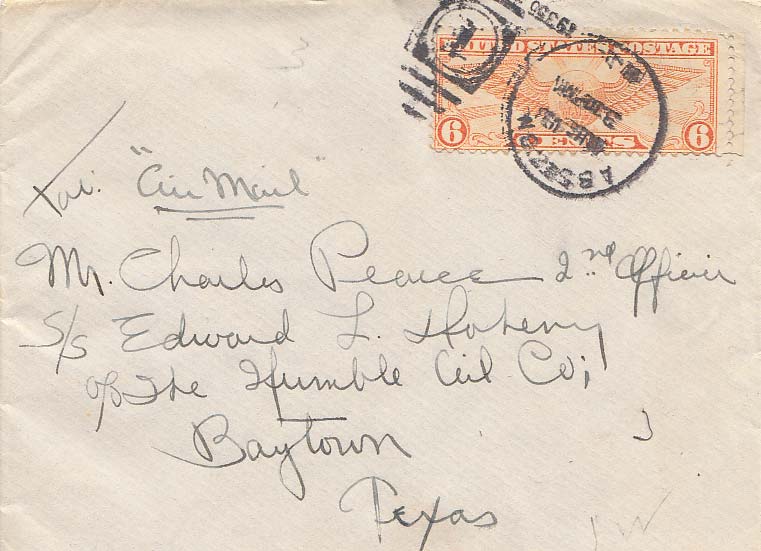 UNITED STATES POSTAGE
6 CENTS 6
"Air Mail"
Mr. Charles Pearce 2nd Officer
S/S Edward L. Doheny
℅ The Humble Oil Co;
Baytown
Texas